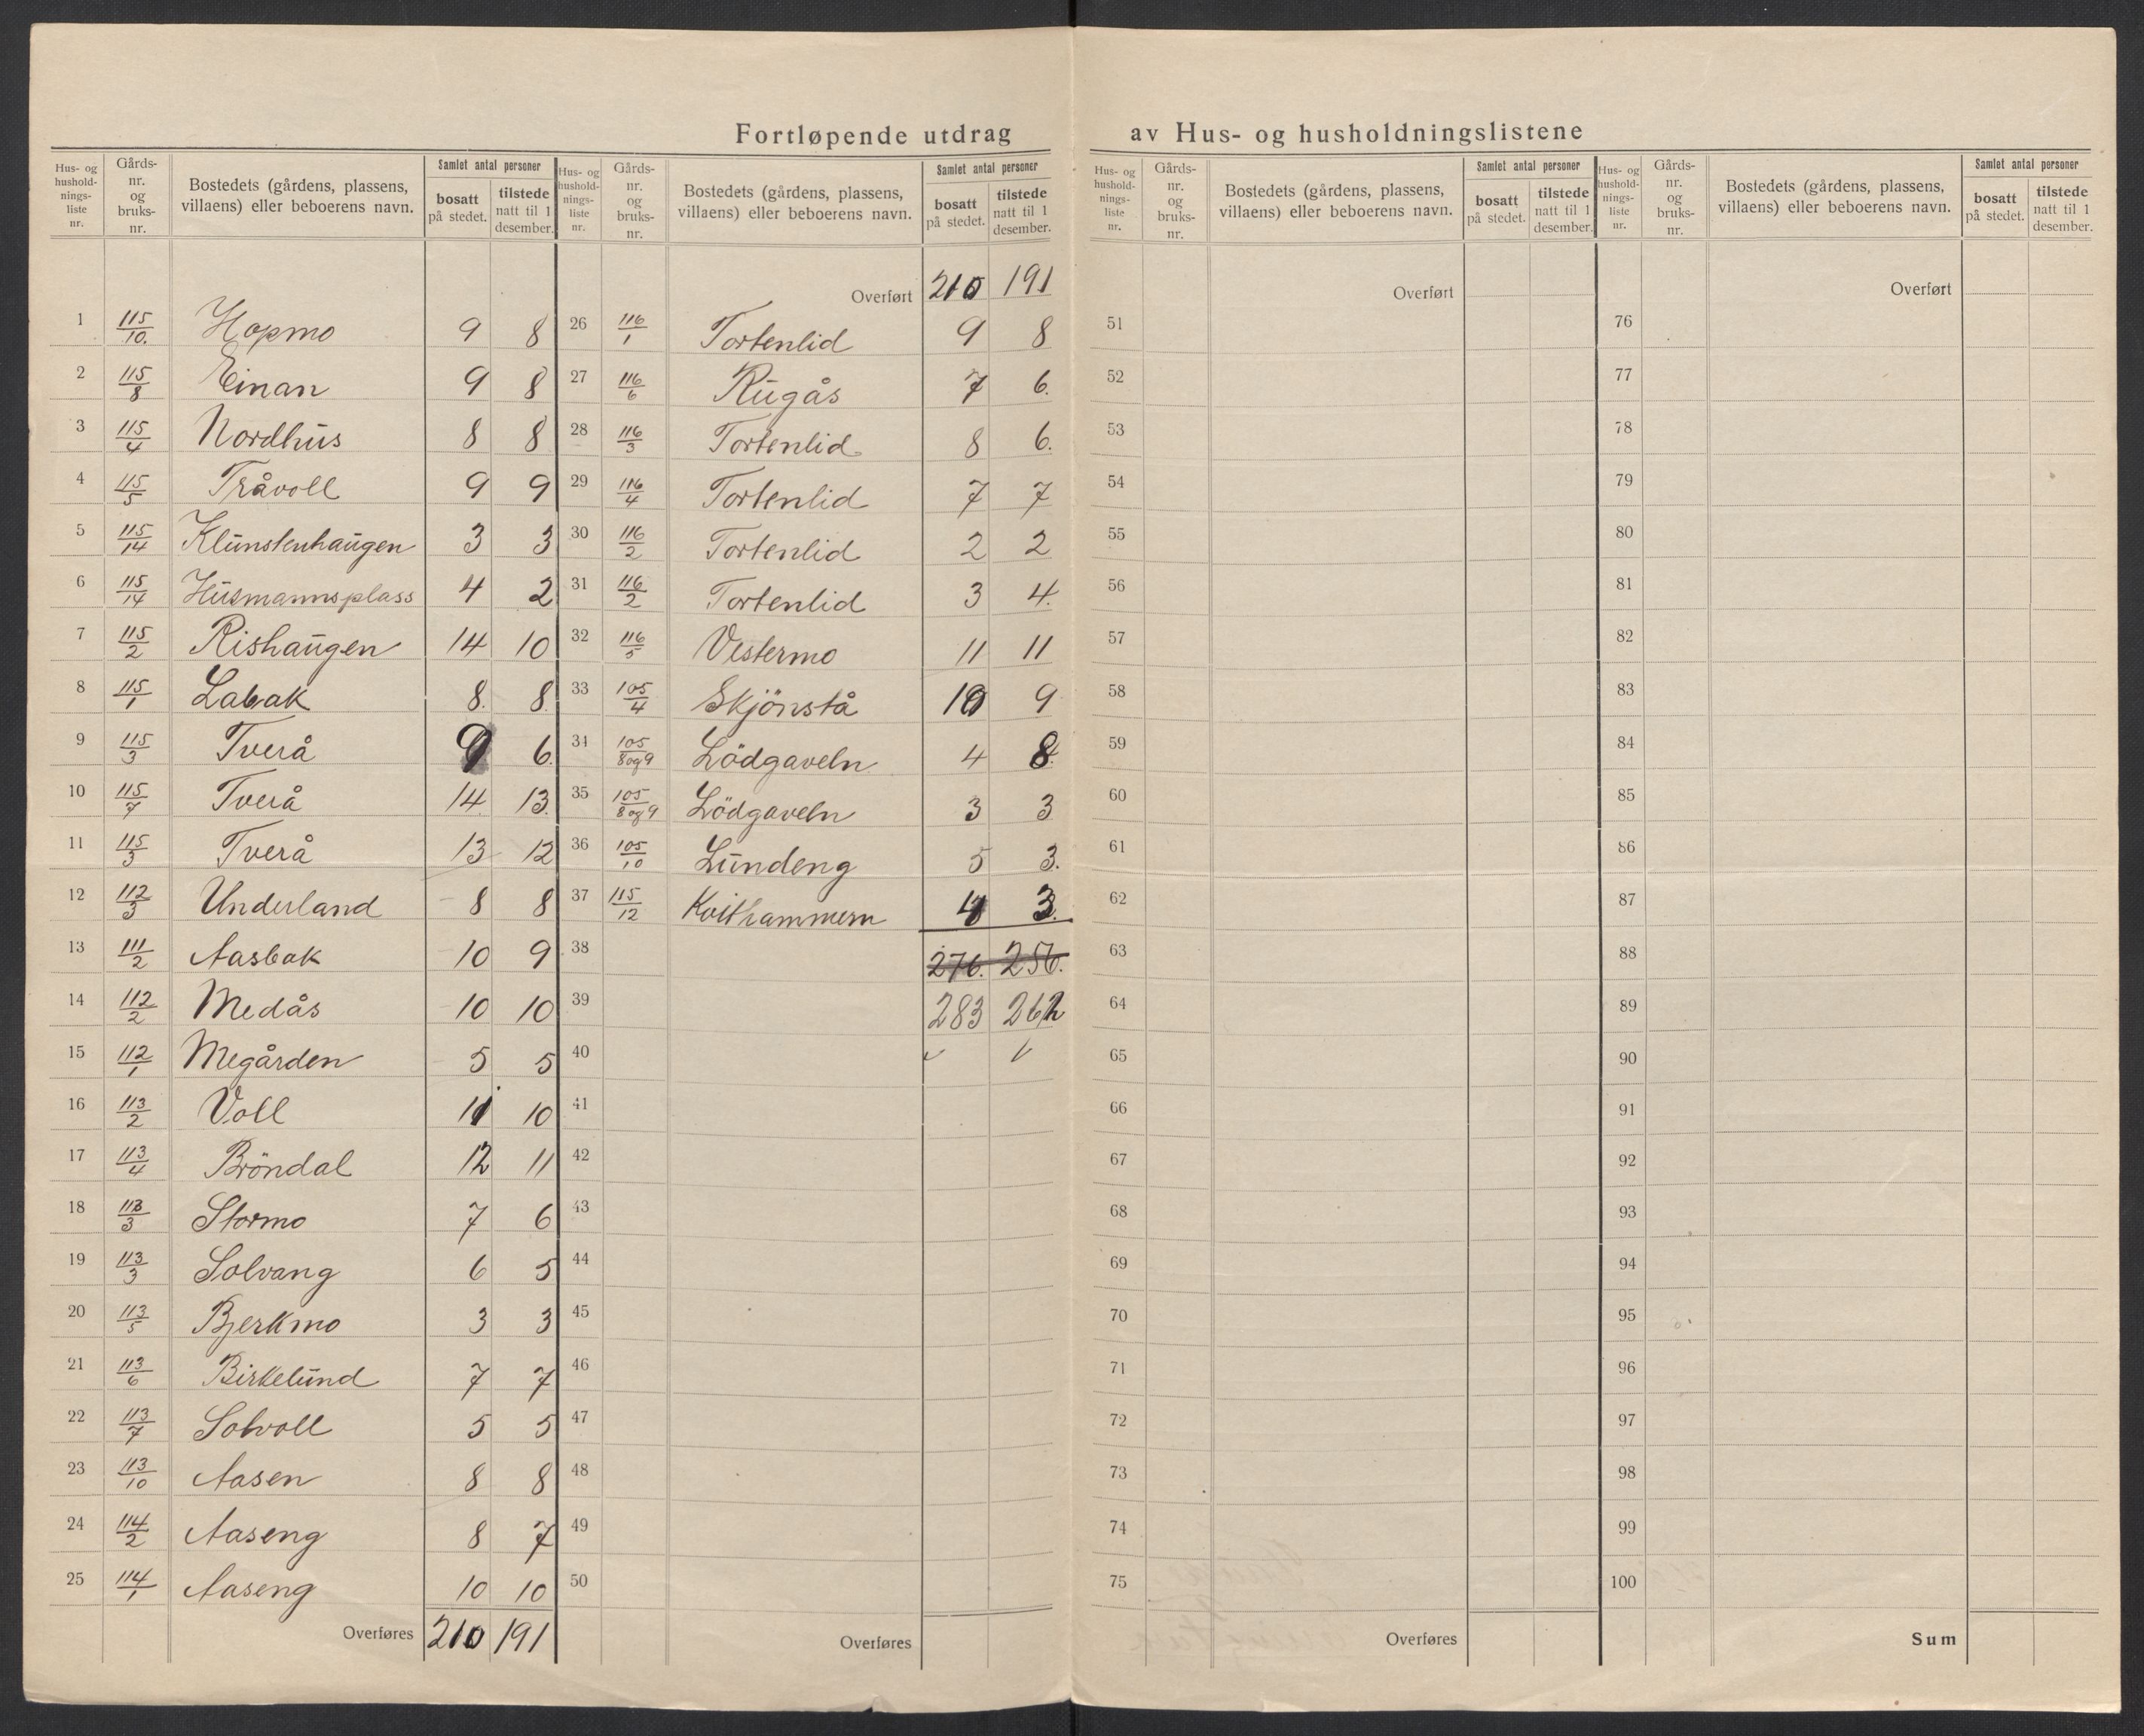 Fortløpende utdrag av Hus- og husholdningslistene
Hus- og husholdningsliste nr. | Gårds-nr. og bruks-nr. | Bostedets (gårdens, plassens, villaens) eller beboerens navn. | Samlet antal personer | bosatt på stedet. | tilstede natt til 1 desember.
1 115/10. Hopmo 9 8
2 115/8 Einan 9 8
3 115/4 Nordhus 8 8
4 115/5 Tråvoll 9 9
5 115/14 Klunstenhaugen 3 3
6 115/14 Husmannsplass 4 2
7 115/2 Rishaugen 14 10
8 115/1 Labak 8. 8.
9 115/3 Tverå 9 6.
10 115/7 Tverå 14. 13.
11 115/3 Tverå 13 12
12 112/3 Underland 8 8
13 111/2 Aasbak 10 9
14 112/2 Medås 10 10
15 112/1 Megården 5 5
16 113/2 Voll 11 10
17 113/4 Bröndal 12 11
18 113/3 Stormo 7 6
19 113/3 Solvang 6 5
20 113/5 Bjerkmo 3 3
21 113/6 Birkelund 7 7
22 113/7 Solvoll 5 5
23 113/10 Aasen 8 8
24 114/2 Aaseng 8 7
25 114/1 Aaseng 10 10
Overføres 210 191
Hus- og husholdningsliste nr. | Gårds-nr. og bruks-nr. | Bostedets (gårdens, plassens, villaens) eller beboerens navn. | Samlet antal personer | bosatt på stedet. | tilstede natt til 1 desember.
Overført 210 191
26 116/1 Tortenlid 9 8
27 116/6 Rugås 7 6.
28 116/3 Tortenlid 8 6.
29 116/4 Tortenlid 7 7
30 116/2 Tortenlid 2 2
31 116/2 Tortenlid 3 4.
32 116/5 Vestermo 11 11
33 105/4 Skjönstå 10 9
34 105/8 og 9 Lödgaveln 4 8.
35 105/8 og 9 Lödgaveln 3 3
36 105/10 Lundeng 5 3.
37 115/12 Kvithammern 4 3.
38 276. 256.
39 283 262
40
41
42
43
44
45
46
47
48
49
50
Overføres
Hus- og husholdningsliste nr. | Gårds-nr. og bruks-nr. | Bostedets (gårdens, plassens, villaens) eller beboerens navn. | Samlet antal personer | bosatt på stedet. | tilstede natt til 1 desember.
Overført
51
52
53
54
55
56
57
58
59
60
61
62
63
64
65
66
67
68
69
70
71
72
73
74
75
Overføres
Hus- og husholdningsliste nr. | Gårds-nr. og bruks-nr. | Bostedets (gårdens, plassens, villaens) eller beboerens navn. | Samlet antal personer | bosatt på stedet. | tilstede natt til 1 desember.
Overført
76
77
78
79
80
81
82
83
84
85
86
87
88
89
90
91
92
93
94
95
96
97
98
99
100
Sum